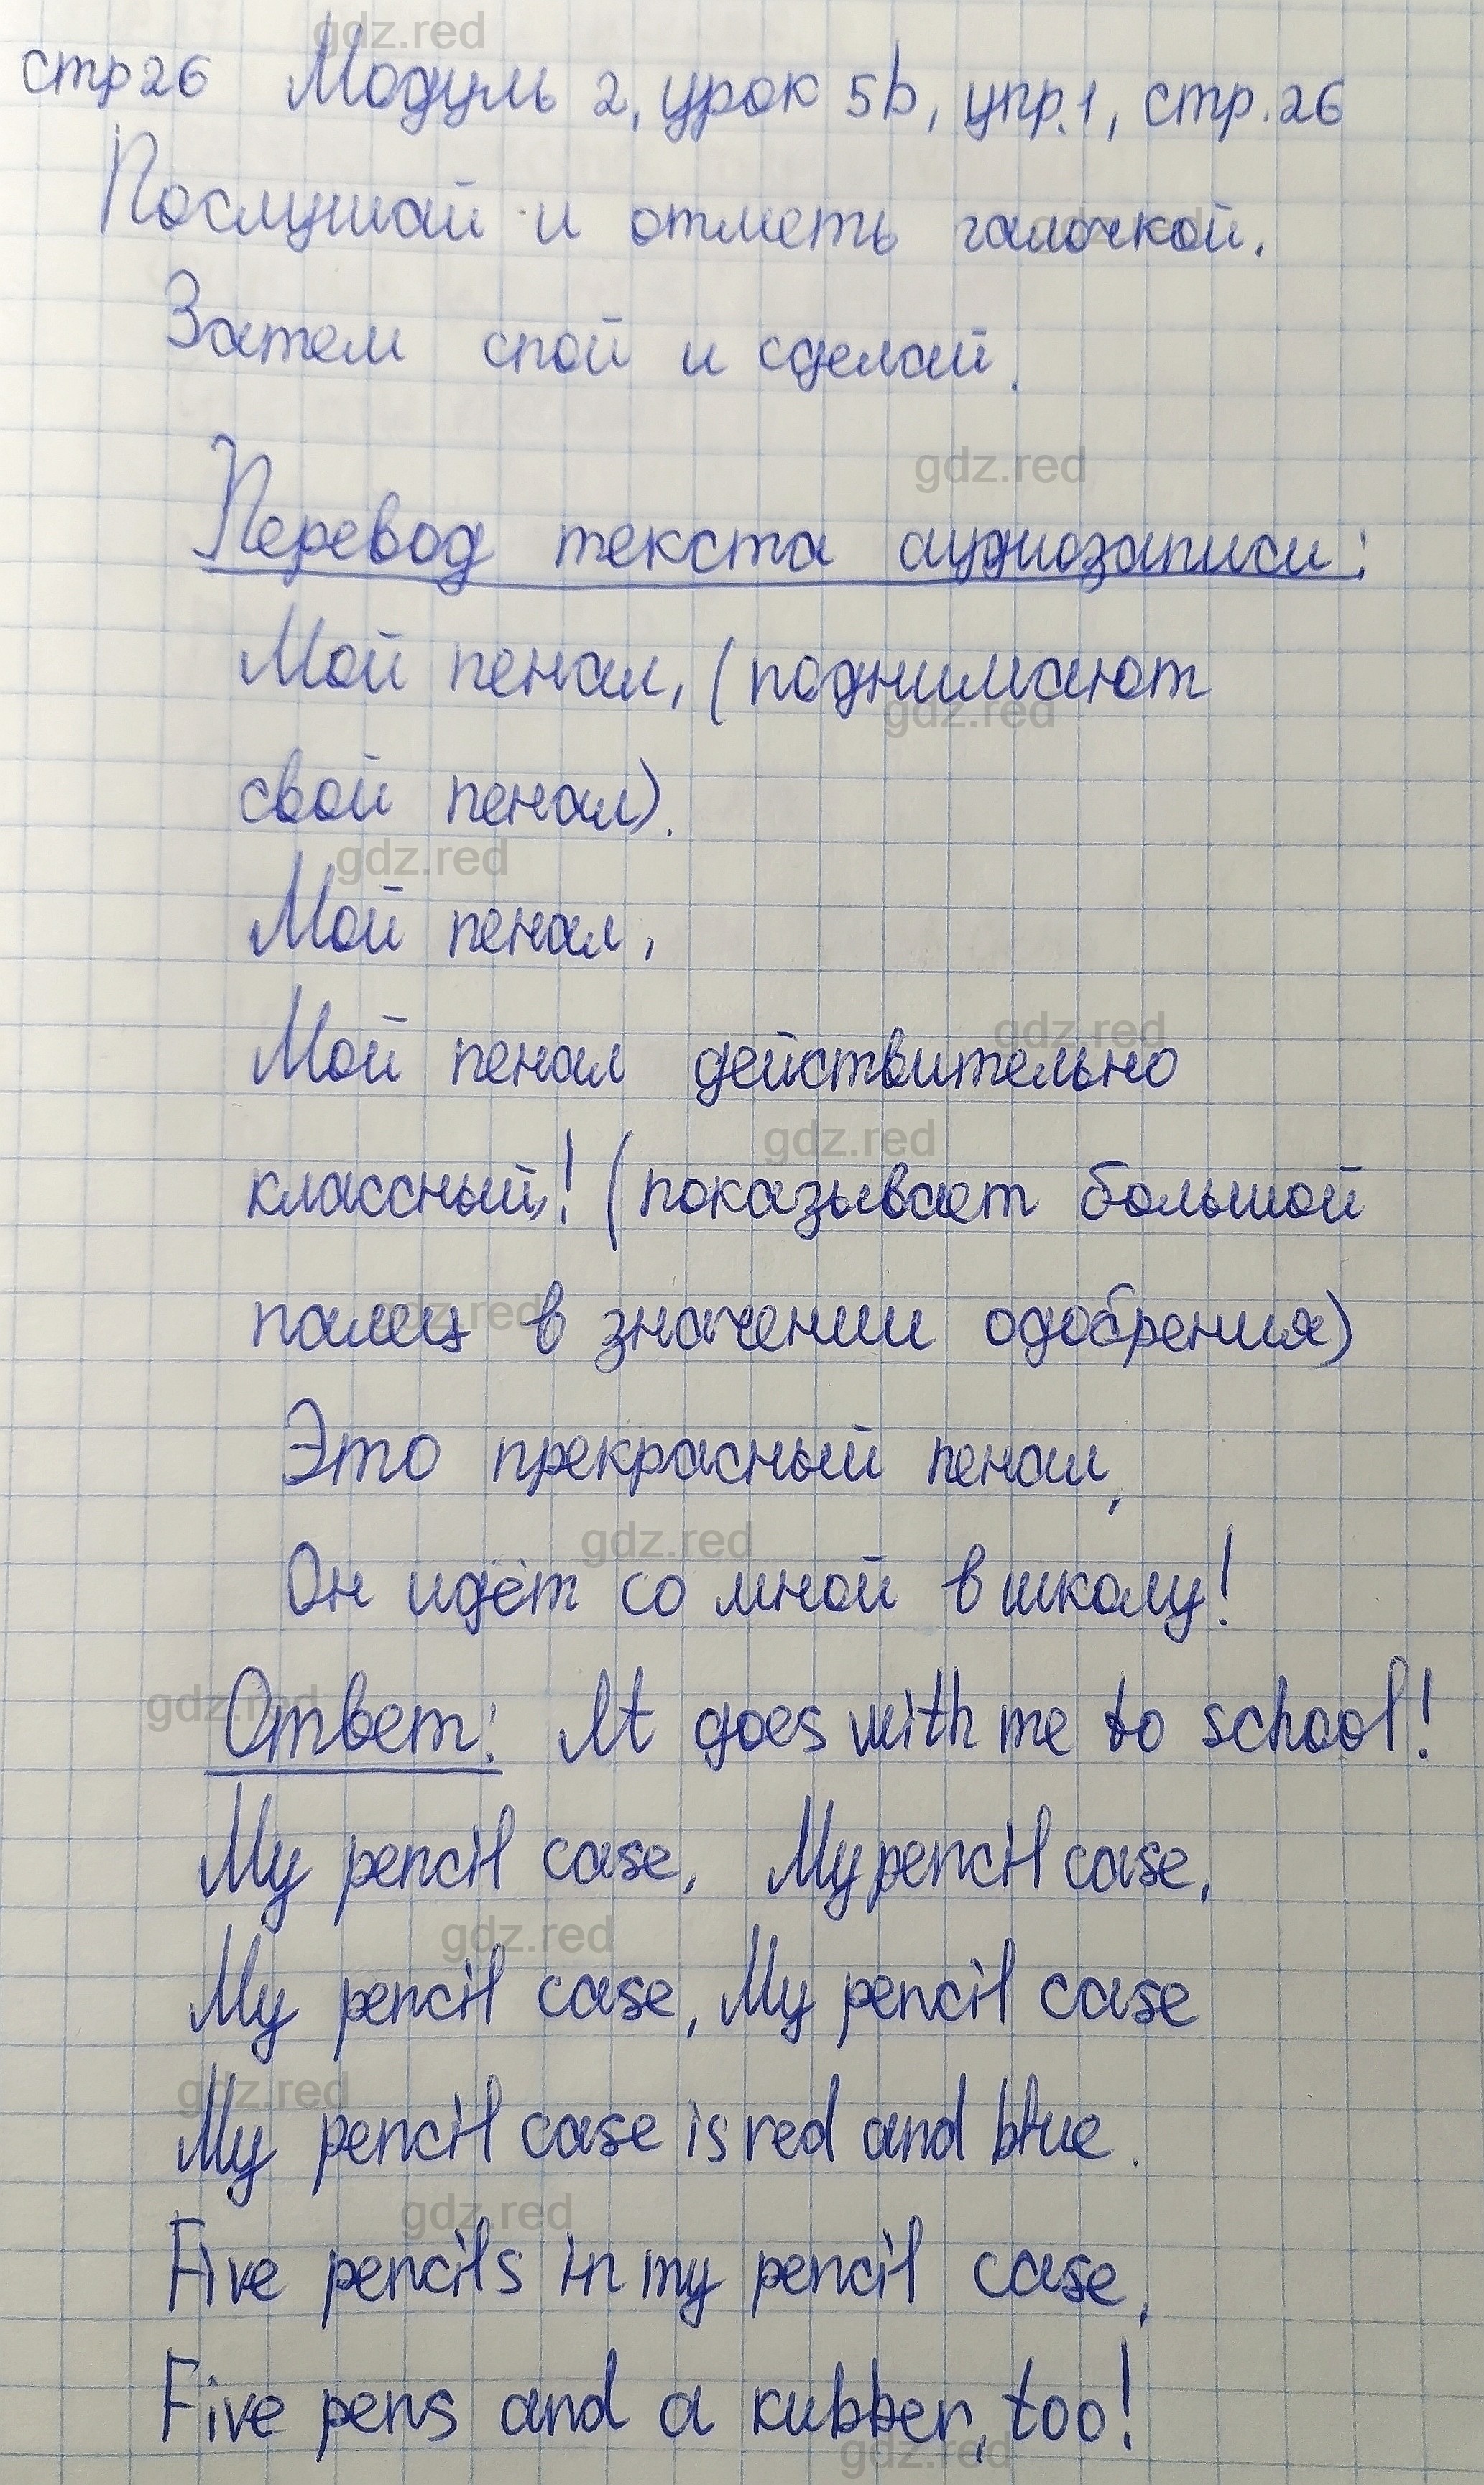 gdz.red
стр 26 Модуль 2, урок 5b, упр.1, стр.26
Послушай и отметь галочкой.
Затем спой и сделай.
gdz.red
Перевод текста аудиозаписи:
Мой пенал, (поднимают
gdz.red
свой пенал).
gdz.red
Мой пенал,
gdz.red
Мой пенал действительно
gdz.red
классный! (показывает большой
gdz.red
палец в значении одобрения)
Это прекрасный пенал,
gdz.red
Он идёт со мной в школу!
gdz.red
Ответ: It goes with me to school!
My pencil case, My pencil case,
gdz.red
My pencil case, My pencil case
gdz.red
My pencil case is red and blue.
gdz.red
Five pencils in my pencil case,
Five pens and a rubber, too!
gdz.red